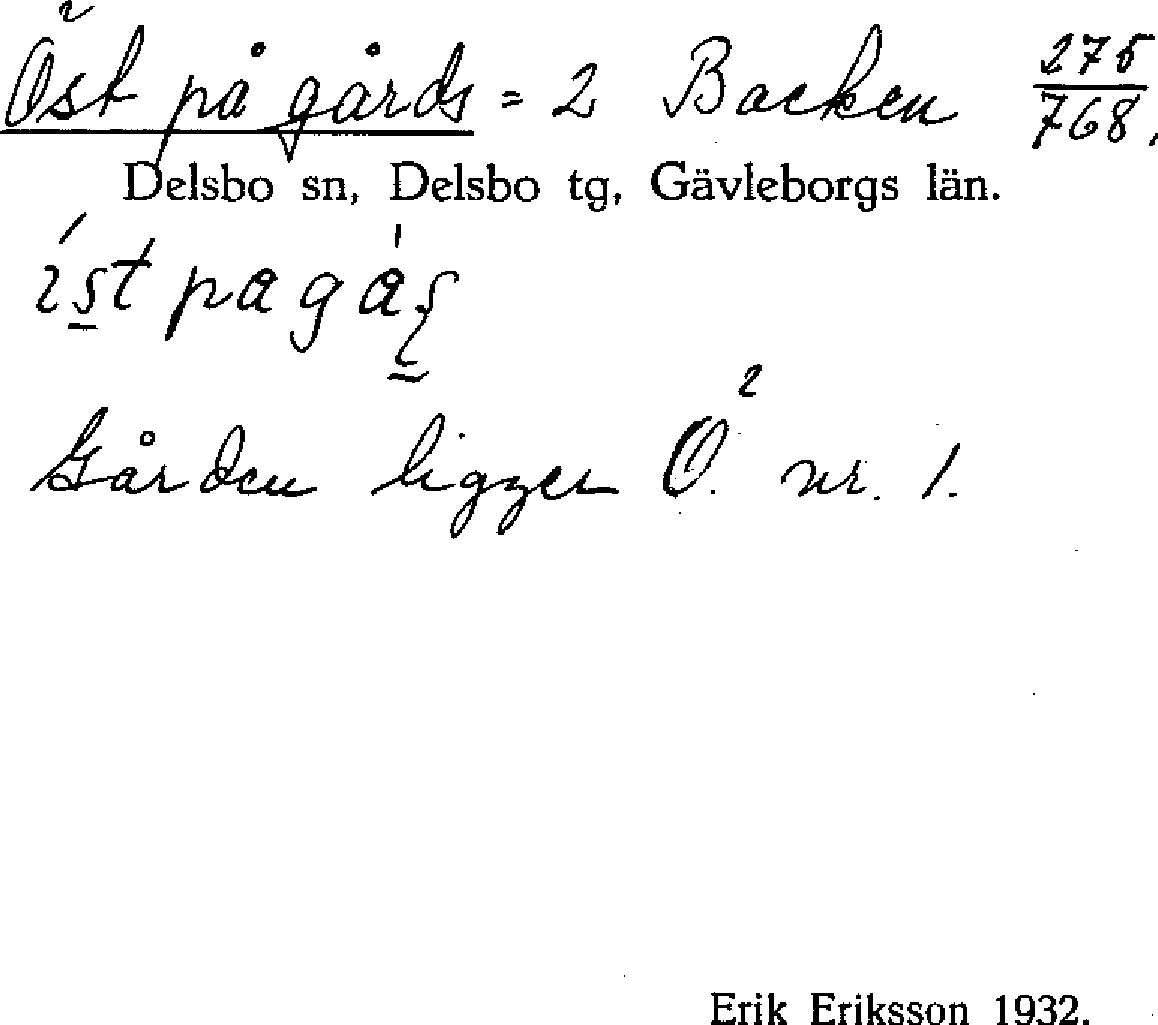 Öst på gårds = 2 Backen 275/768.
Delsbo sn, Delsbo tg, Gävleborgs län.
Gården ligger Ö. nr. 1.
Erik Eriksson 1932.